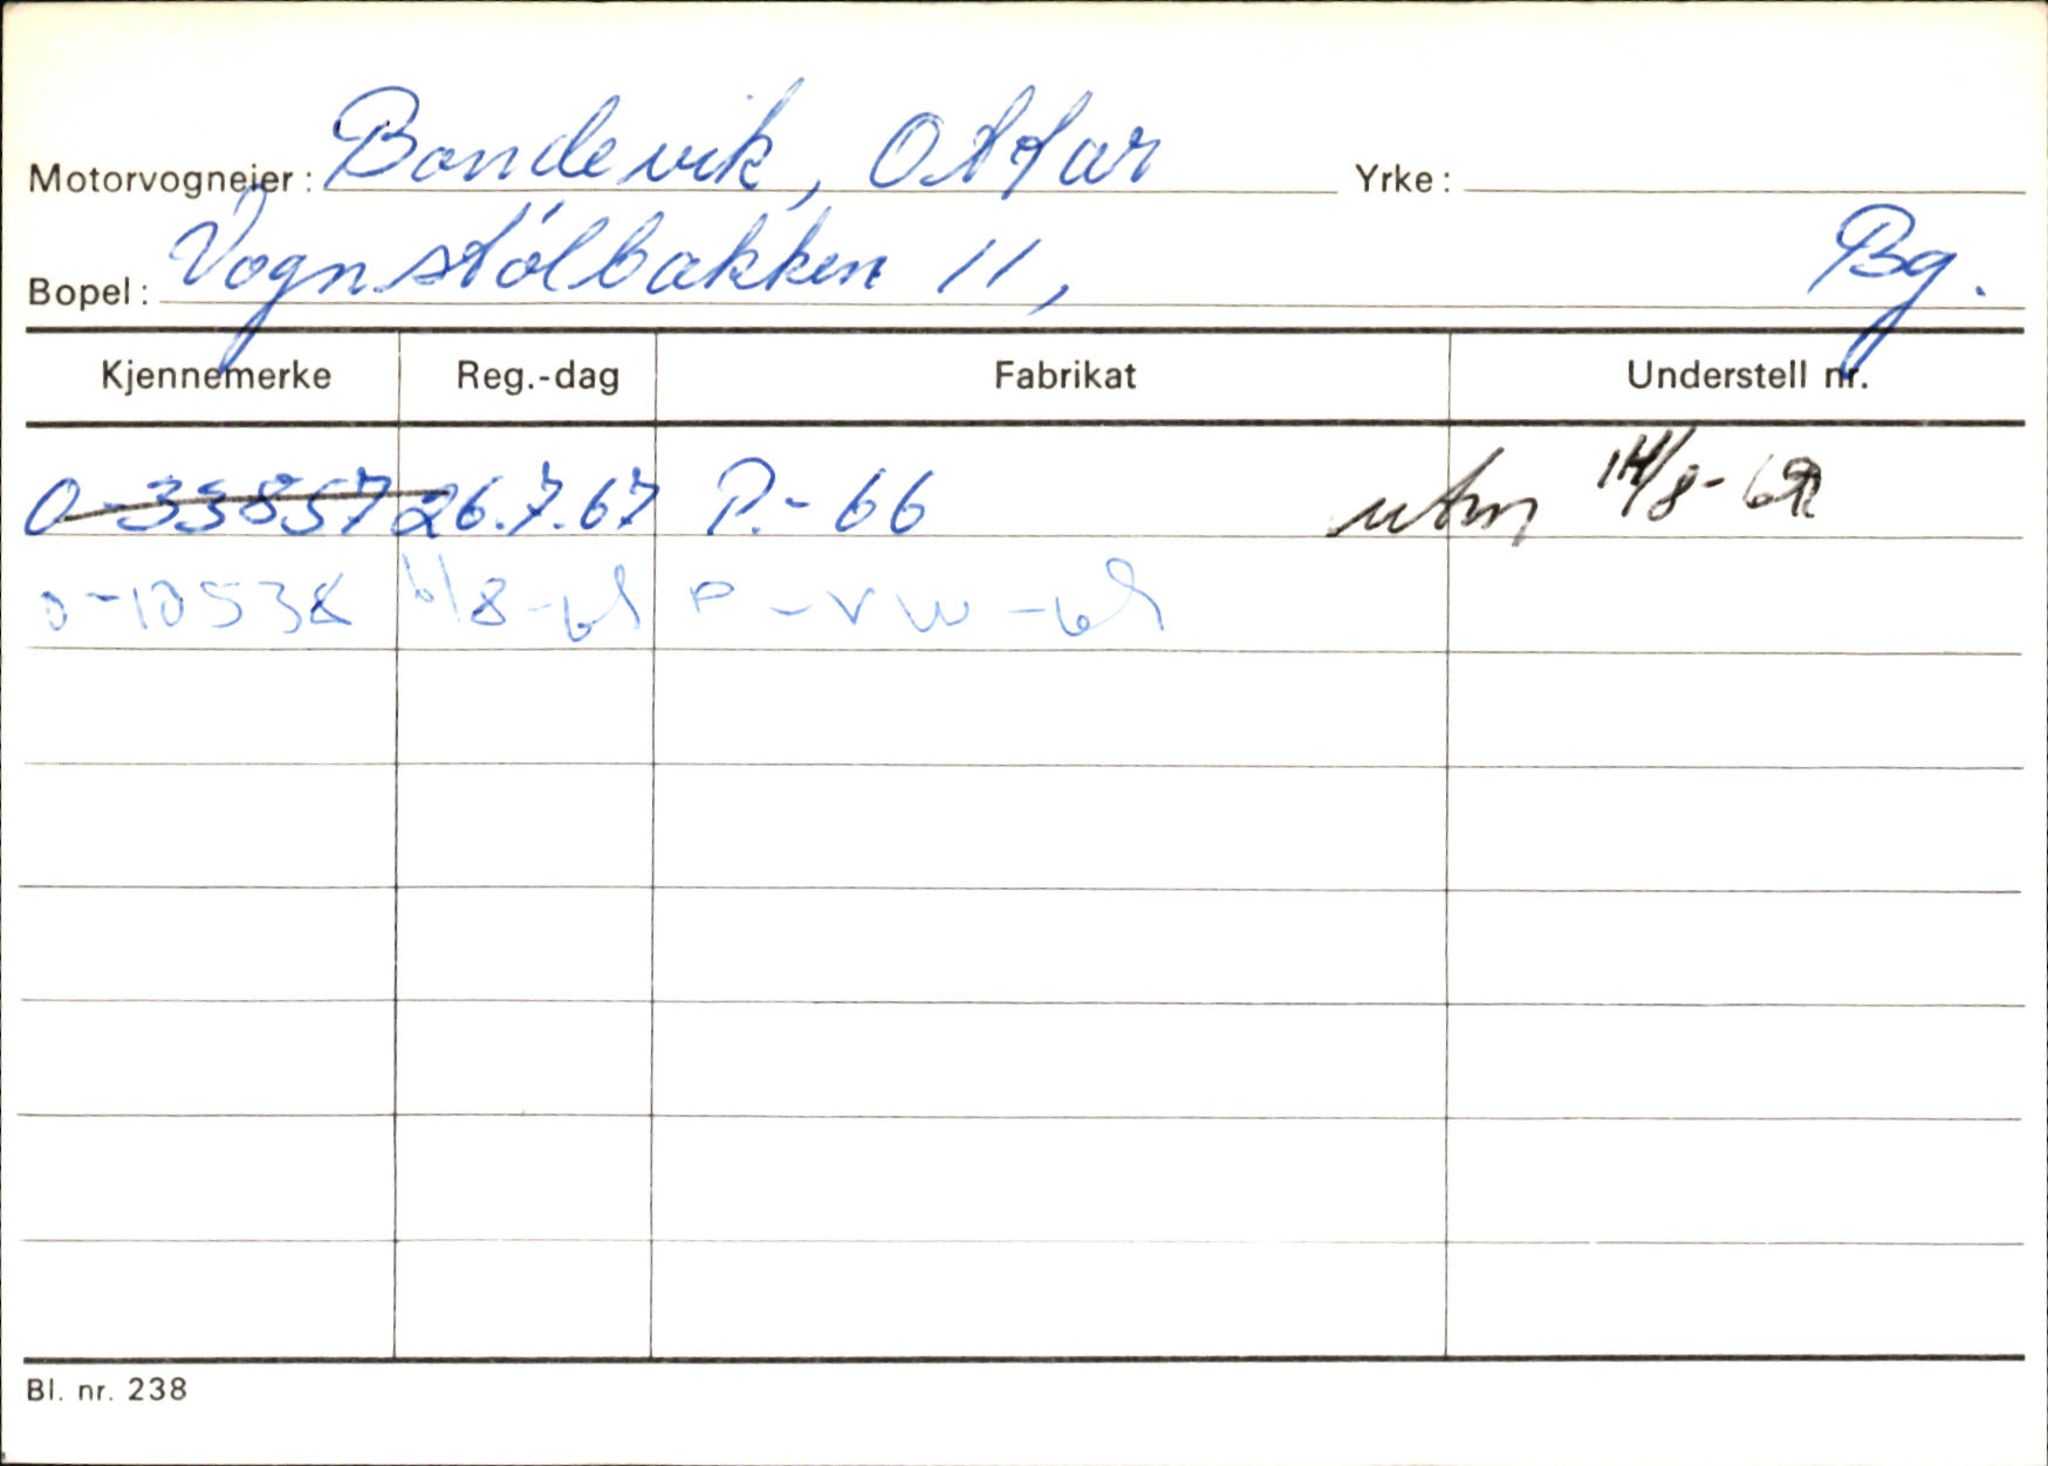 Motorvogneier: Bondevik, Ottar Yrke:
Bopel: Vognstølbakken 11, Bg.
Kjennemerke Reg.-dag Fabrikat Understell nr.
O-33857 26.7.67 P.-66 utm 14/8-69
O-10538 6/8-69 P-VW-69
Bl. nr. 238